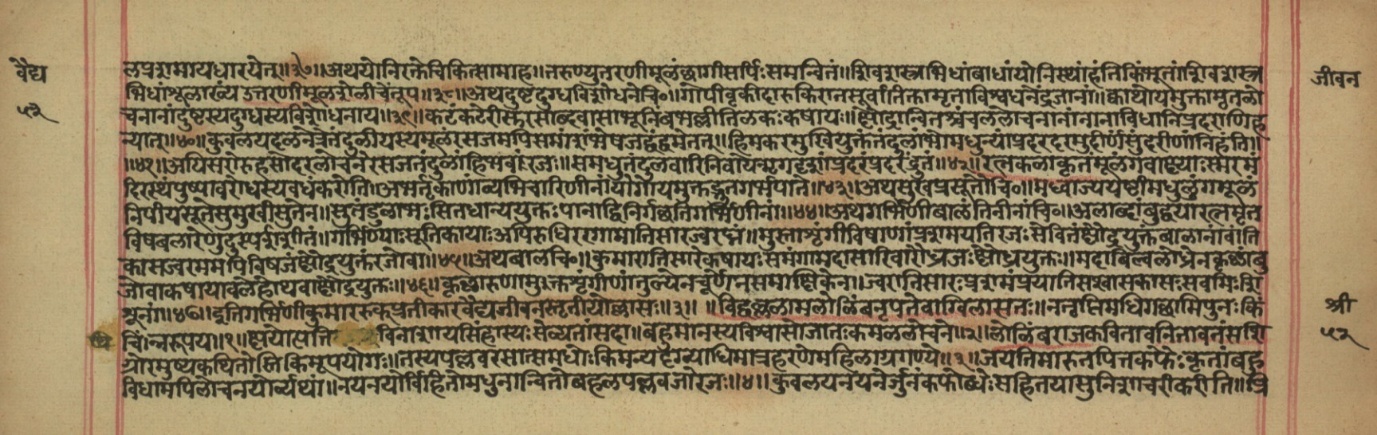 वैद्य
५२
लप्रशमायधारयेत्॥३७॥अथयोनिरक्तेचिकित्सामाह॥तरुण्युतरणीमूलंछागीसर्पिःसमन्वितं॥शिवशस्त्राभिधांबाधांयोनिस्थांहंतिकिंभूतांशिवशस्त्रा
भिधांशूलाख्यउत्तरणीमूलशेलीचेतूप॥३८॥अथदुष्टदुग्धविशोधनेचि०॥गोपीवृकीदारुकिरातसूर्वातिक्तामृताविश्वघनेंद्रजानां॥क्वाथोयमुक्तामृतलो
चनानांदुष्टस्यदुग्धस्यविशोधनाय॥३९॥कटंकटेरीसरसोब्दवासाभूनिंबभल्लीतिलकःकषायः॥क्षौद्रान्वितश्चंचललोचनानांनानाविधानिप्रदराणिह
न्यात्॥४०॥कुवलयदलनेत्रेतंदुलीयस्यमूलंरसजमपिसमांशंभेषजद्वंद्वमेतत्॥हिमकरमुखियुक्तंतंदुलांभोमधुभ्यांप्रदरदरमुदीर्णंसुंदरीणांनिहंति॥
॥४१॥अयिसरोरुहसोदरलोचनेरसजतंदुलांह्रिभवंरजः॥समधुतंदुलवारिनिवार्यन्मृगदृशांप्रदरंप्रदरेद्द्रुतं॥४२॥रत्नकलाकृतमूलंगवाक्ष्याःस्मरमं
दिरस्थंपुष्पावरोधस्यवधंकरोति॥अभर्तृकाणांव्यभिचारिणीनांयोगोयमुक्तद्रुतगर्भपाते॥४३॥अथसुखप्रसूतौचि०॥मध्वाज्ययष्ठीमधुलुंगमूलं
निपीयसूतेसुमुखीसुतेन॥सुतंडुलांभःसितधान्ययुक्तःपानाद्विनिर्गछतिगर्भिणीनां॥४४॥अथगर्भिणीबालंतिनीनांचि०॥अलाब्दांबुद्वयारत्नमृत
विषबलारेणुदुस्पर्शाशीतं॥गर्भिण्याःसूतिकायाःअपिरुधिररगामातिसारज्वरघ्नं॥मुस्ताशृंगीविषाणांप्रशमयतिरजःसेवितंक्षौद्रयुक्तंबालानांवांति
कासज्वरममपिविषजंक्षौद्रयुक्तंरजोवा॥४५॥अथबालचि०॥कुमारातिसारेकषायःसमंगामदासारिवारोध्रजःक्षौद्रयुक्तः॥मदाबिल्वलोध्रेनकृछांबु
जावाकषायावलेहोथवाक्षौद्रयुक्तः॥४६॥कृछारुणामुस्तकशृंगीणांतुल्येनचूर्णेनसमाक्षिकेन॥ज्वरातिसारःप्रशमंप्रयातिसखासकासःसवमिःशि
शूनां॥४७॥इतिगर्भिणीकुमाररुक्प्रतीकारेवैद्यजीवनस्तृतीयोल्लासः॥३॥॥विद्वल्ललामलोलिंबनृपनेवाग्विलासतः॥नन्वब्धिमधिगछामिपुनःकिं
चिन्निरूपय॥१॥क्षयासक्तिविनाशायसिंहास्यःसेव्यतांसदा॥बहुमानस्यविश्वासोजातःकमललोचने॥२॥लोलिंबराजकवितावनितावतंसशि
ग्रोरमुष्यकथितोस्तिकिमूपयोगः॥तस्यपल्लवरसात्समधोःकिमन्यद्दृग्व्याधिमात्रहरणेमहिलाग्रगण्ये॥३॥जयतिमारुतपित्तकफैःकृतांबहु
विधामपिलोचनयोर्व्यथां॥नयनयोर्विहितोमधुनान्वितोबहलपल्लवजोरजः॥४॥कुवलयनयनेर्जुनंकफोत्थेःसहितयासुनिशाचरीकरीति॥पि
जीवन
श्री
५२